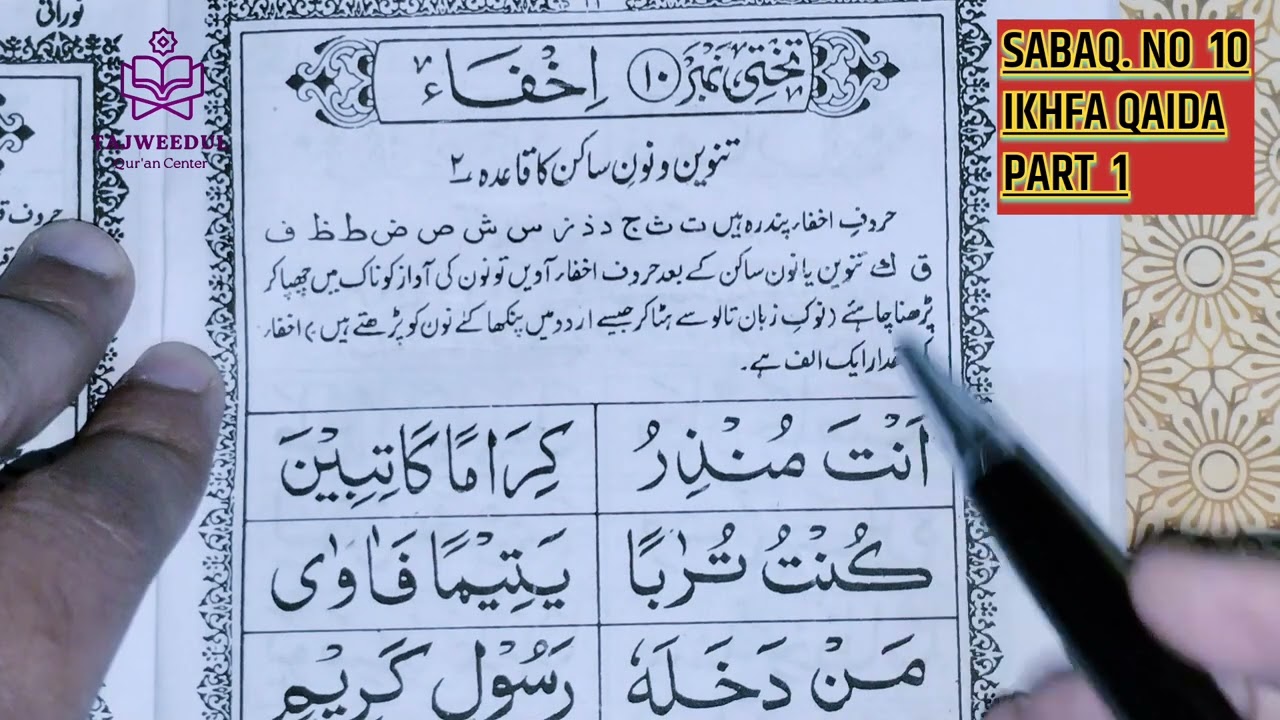 نورانی
SABAQ. NO 10
IKHFA QAIDA
PART 1
TAJWEEDUL
Qur'an Center
تختی نمبر ۱۰ اِخْفَاء
تنوین و نون ساکن کا قاعدہ ۲
حروفِ اخفار پندرہ ہیں ت ث ج د ذ ز س ش ص ض ط ظ ف
ق ك تنوین یا نون ساکن کے بعد حروف اخفار آویں تو نون کی آواز کو ناک میں چھپا کر
پڑھنا چاہئے (نوکِ زبان تالو سے ہٹا کر جیسے اردو میں پنکھا کے نون کو پڑھتے ہیں) اخفار
ایک الف ہے۔
اَنْتَ مُنْذِرُ كِرَامًا كَاتِبِيْنَ
كُنْتُ تُرٰبًا يَتِيْمًا فَاٰوٰى
مَنْ دَخَلَهٗ رَسُوْلٍ كَرِيْمٍ
حروف